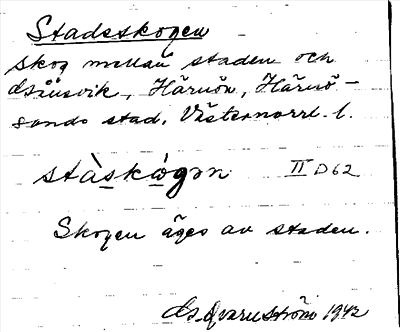 Stadsskogen
skog mellan staden och
Härnön, Härnö-
sands stad, Västernorrl. l.
stàskògən II D 62
Skogen äges av staden.
Qvarnström 1942